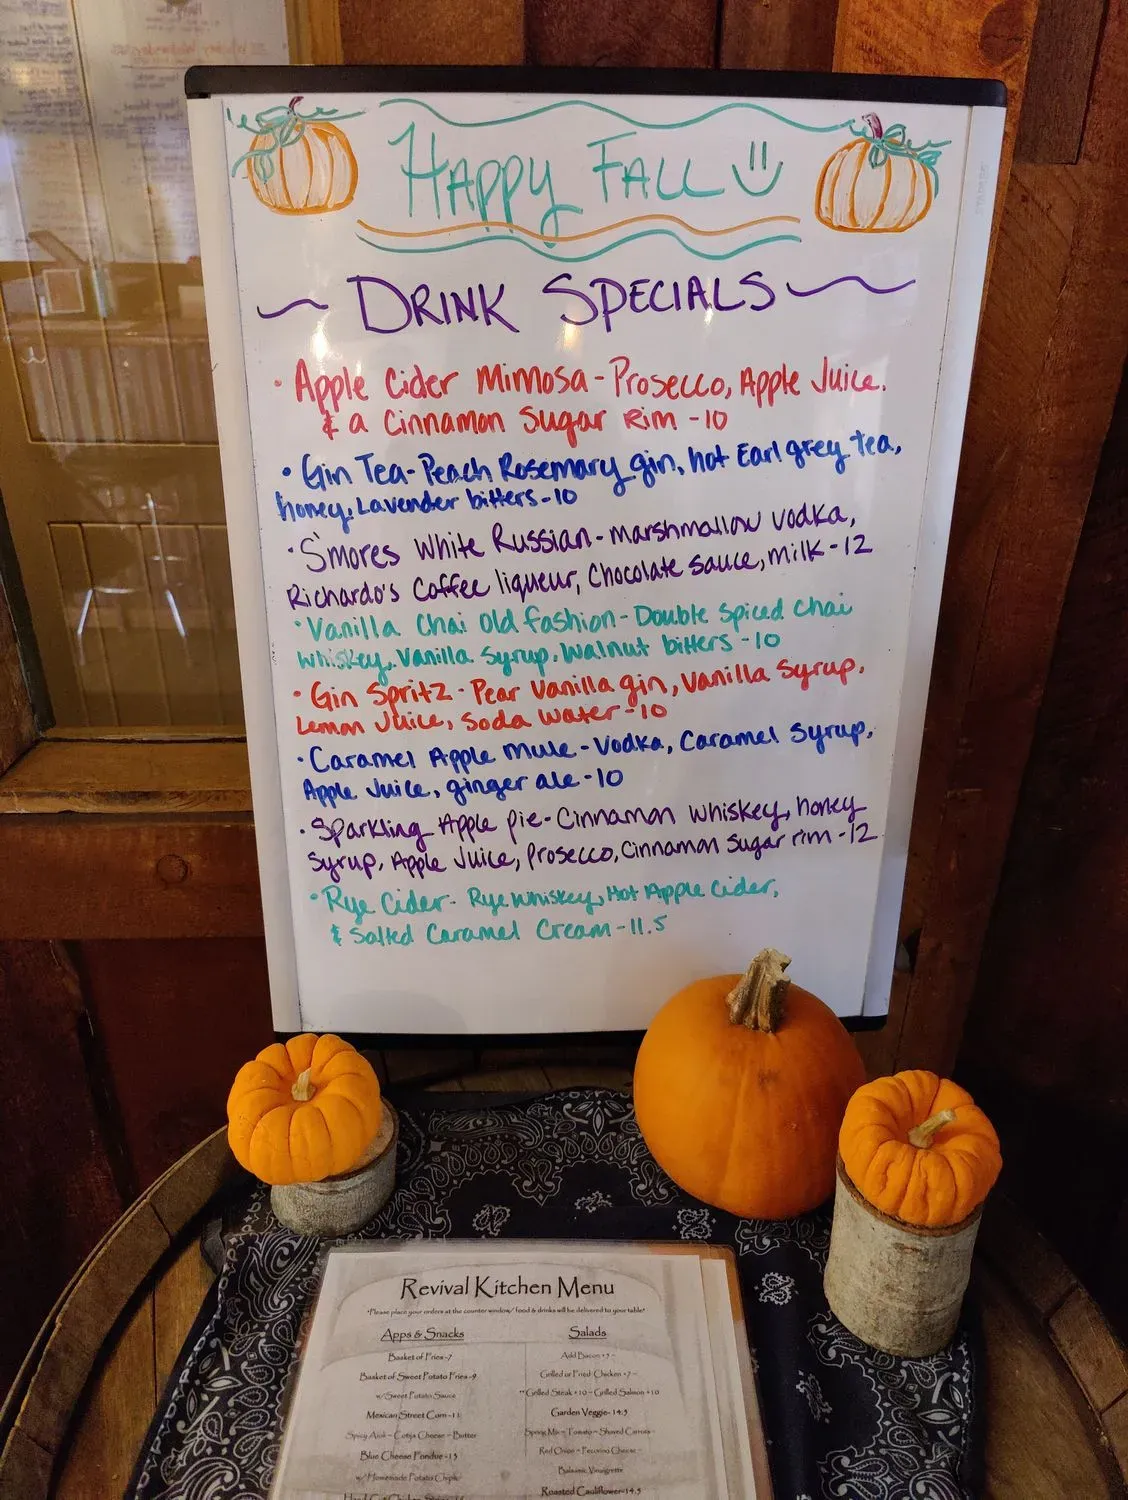 Happy Fall
Drink Specials
• Apple Cider Mimosa - Prosecco, Apple Juice,
& a Cinnamon Sugar Rim - 10
• Gin Tea - Peach Rosemary gin, hot Earl grey tea,
honey, Lavender bitters - 10
• S'mores White Russian - marshmallow vodka,
Richardo's Coffee liqueur, Chocolate sauce, milk - 12
• Vanilla Chai Old fashion - Double spiced chai
whiskey, Vanilla syrup, walnut bitters - 10
• Gin Spritz - Pear Vanilla gin, Vanilla syrup,
Lemon Juice, soda water - 10
• Caramel Apple Mule - Vodka, Caramel syrup,
Apple Juice, ginger ale - 10
• Sparkling Apple pie - Cinnamon whiskey, honey
syrup, Apple Juice, Prosecco, Cinnamon sugar rim - 12
• Rye Cider - Rye whiskey, Hot Apple Cider,
& Salted Caramel Cream - 11.5
Revival Kitchen Menu
*Please place your orders at the counter window/ food & drinks will be delivered to your table*
Apps & Snacks
Basket of Fries -7
Basket of Sweet Potato Fries -9
w/Sweet Potato Sauce
Mexican Street Corn -11
Spicy Aioli ~ Cotija Cheese ~ Butter
Blue Cheese Fondue -13
w/Homemade Potato Chips
Salads
Add Bacon +3 ~
Grilled or Fried Chicken +7 ~
**Grilled Steak +10 ~ Grilled Salmon +10
Garden Veggie- 14.5
Spring Mix ~ Tomato ~ Shaved Carrots ~
Red Onion ~ Pecorino Cheese ~
Balsamic Vinaigrette
Roasted Cauliflower-14.5